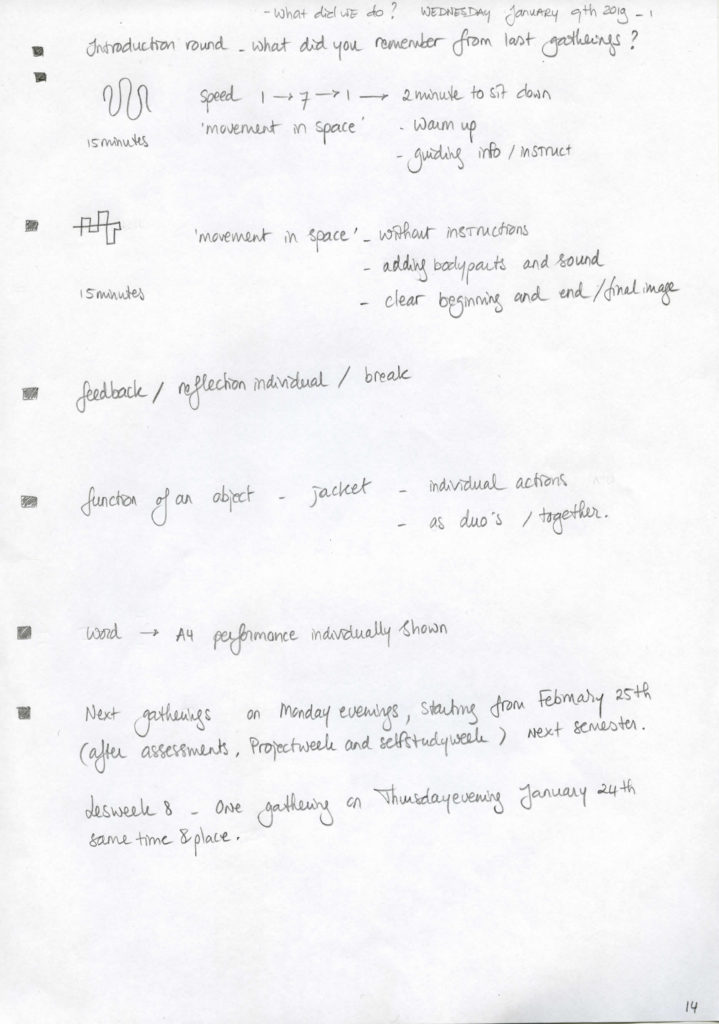 - What did WE do? WEDNESDAY January 9th 2019 - 1
Introduction round - what did you remember from last gatherings?
speed 1 → 7 → 1 → 2 minute to sit down
'movement in space' - warm up
15 minutes
- guiding info / instruct
'movement in space' - without instructions
- adding bodyparts and sound
15 minutes
- clear beginning and end / final image
feedback / reflection individual / break
function of an object - jacket - individual actions
- as duo's / together.
word → A4 performance individually shown
Next gatherings on Monday evenings, starting from February 25th
(after assessments, Projectweek and selfstudyweek) next semester.
Lesweek 8 - one gathering on Thursdayevening January 24th
same time & place.
14